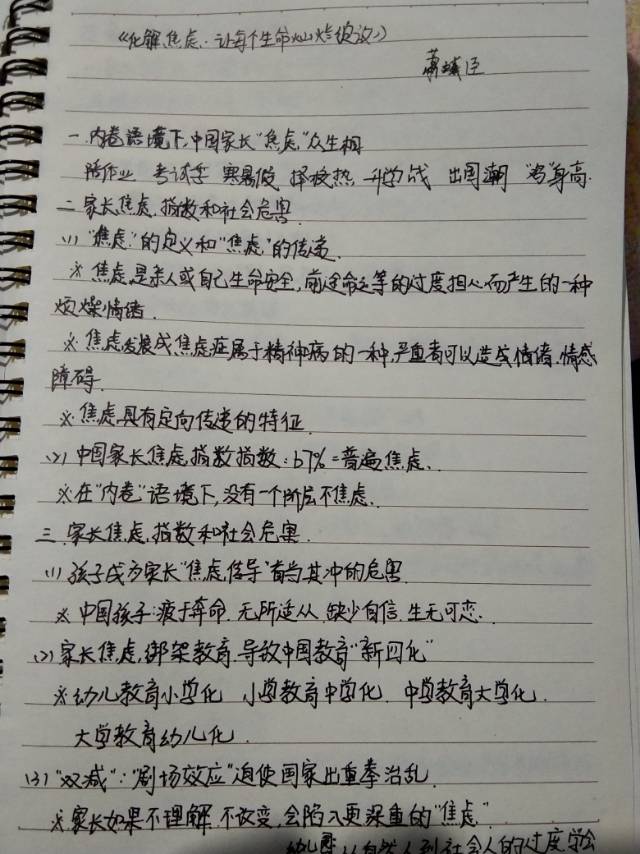 《化解焦虑·让每个生命灿烂绽放》
萧斌臣
一.内卷语境下,中国家长"焦虑"众生相
陪作业 考试季 寒暑假 择校热 升学战 出国潮 "鸡"身高.
二.家长焦虑,指数和社会危害
(1)"焦虑"的定义和"焦虑"的传递.
※焦虑是亲人或自己生命安全,前途命运等的过度担心而产生的一种
烦燥情绪.
※.焦虑发展成焦虑症属于精神病的一种,严重者可以造成情绪.情感
障碍.
※.焦虑具有定向传递的特征.
(2)中国家长焦虑,指数指数:67%=普遍焦虑.
※在"内卷"语境下,没有一个阶层不焦虑.
三.家长焦虑,指数和社会危害.
(1)孩子成为家长"焦虑传导"首当其冲的危害
※中国孩子:疲于奔命.无所适从.缺少自信.生无可恋.
(2)家长焦虑,绑架教育.导致中国教育"新四化"
※幼儿教育小学化 小学教育中学化. 中学教育大学化.
大学教育幼儿化.
(3)"双减":"剧场效应"迫使国家出重拳治乱
※家长如果不理解.不改变,会陷入更深重的"焦虑"
从自然人到社会人的过度学会